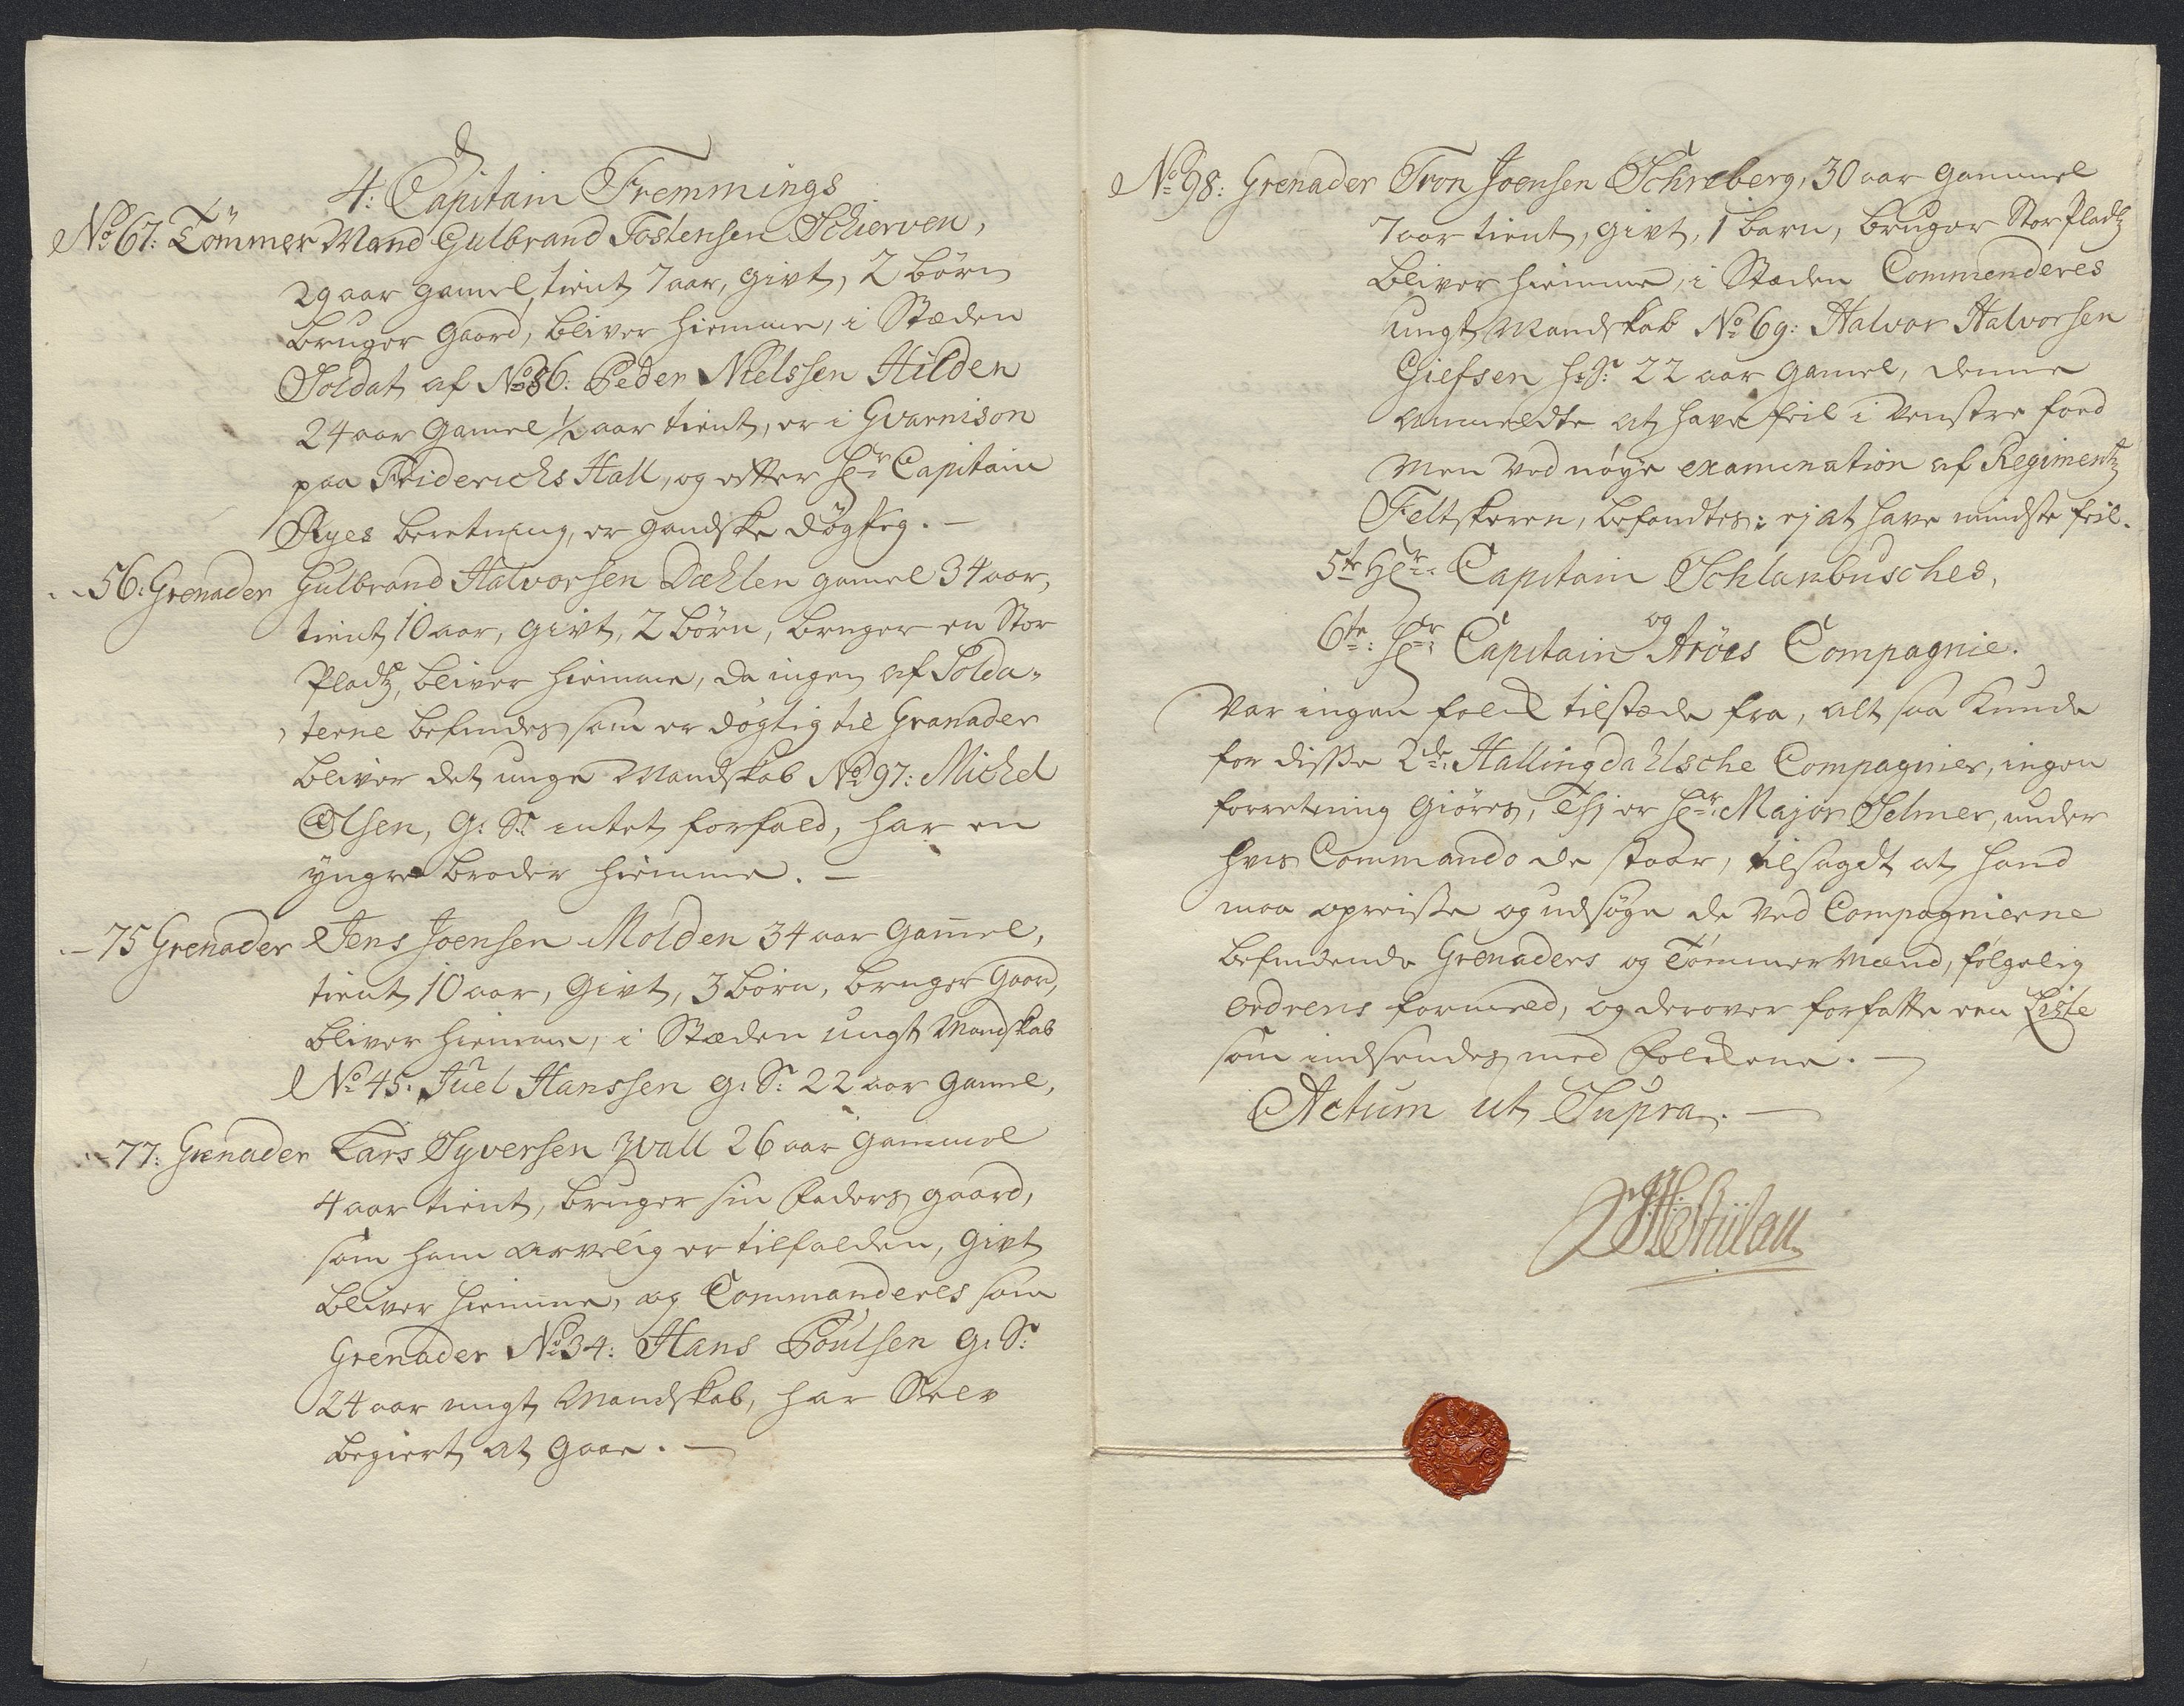 4: Capitain Fremmings
No 67: Tömmer Mand Gulbrand Tostensen Schierven,
29 aar gamel, tient 7 aar, givt, 2 börn
bruger gaard, bliver hiemme, i Stæden
Soldat af No 86: Peder Nielssen Hilden
24 aar gamel 1/2 aar tient, er i Gvarnison
paa Friderichs Hall, og efter Hr Capitain
Ryes beretning, er gandske døgtig. —
— 56: Grenader Gulbrand Halvorsen Dæhlen gamel 34 aar,
tient 10 aar, givt, 2 börn, bruger en Stor
Pladtz, bliver hiemme, da ingen af Solda-
terne befindes som er døgtig til Granader
bliver det unge Mandskab No 97: Michel
Olsen, G: S: intet forfald, har en
yngre broder hiemme. —
— 75 Grenader Jens Joensen Molden 34 aar gamel,
tient 10 aar, givt, 3 börn, bruger gaard,
bliver hiemme, i Stæden ungt Mandskab
No 45: Juel Hanssen G: S: 22 aar gamel,
— 77: Grenader Lars Syversen Wall 26 aar gammel
4 aar tient, bruger sin Faders gaard,
som ham arvelig er tilfalden, givt
bliver hiemme, og Commanderes som
Grenader No 34: Hans Poulsen G: S:
24 aar ungt Mandskab, har Selv
begiert at gaae. —
No 98: Grenader Tron Joensen Schreberg, 30 aar gammel
7 aar tient, givt, 1 barn, bruger Stor Pladtz
bliver hiemme, i Stæden Commenderes
ungt Mandskab No 69: Halvor Halvorsen
Giefsen H: S: 22 aar gamel, denne
anmeldte at have feil i venstre foed
Men ved nøye examination af Regimentz
Feltskeren, befandtes: ej at have mindste feil.
5te Hr: Capitain Schlambusches,
og
6te: Hr: Capitain Aröes Compagnie.
Var ingen folck tilstæde fra, alt saa Kunde
for disse 2de: Hallingdahlsche Compagnier, ingen
forretning giøres, Thj er Hr: Major Selmer, under
hvis Commando de staar, tilsagdt at hand
maa opreise og udsøge de ved Compagnierne
befindende Grenaders og Tömmer Mænd, følgelig
ordrens formeld, og derover forfatte een Liste
som indsendes med Folckene. —
Actum ut Supra. —